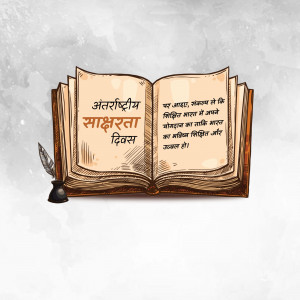 अंतर्राष्ट्रीय
साक्षरता
दिवस
पर आइए, संकल्प लें कि
शिक्षित भारत में अपने
योगदान का ताकि भारत
का भविष्य शिक्षित और
उज्वल हो।